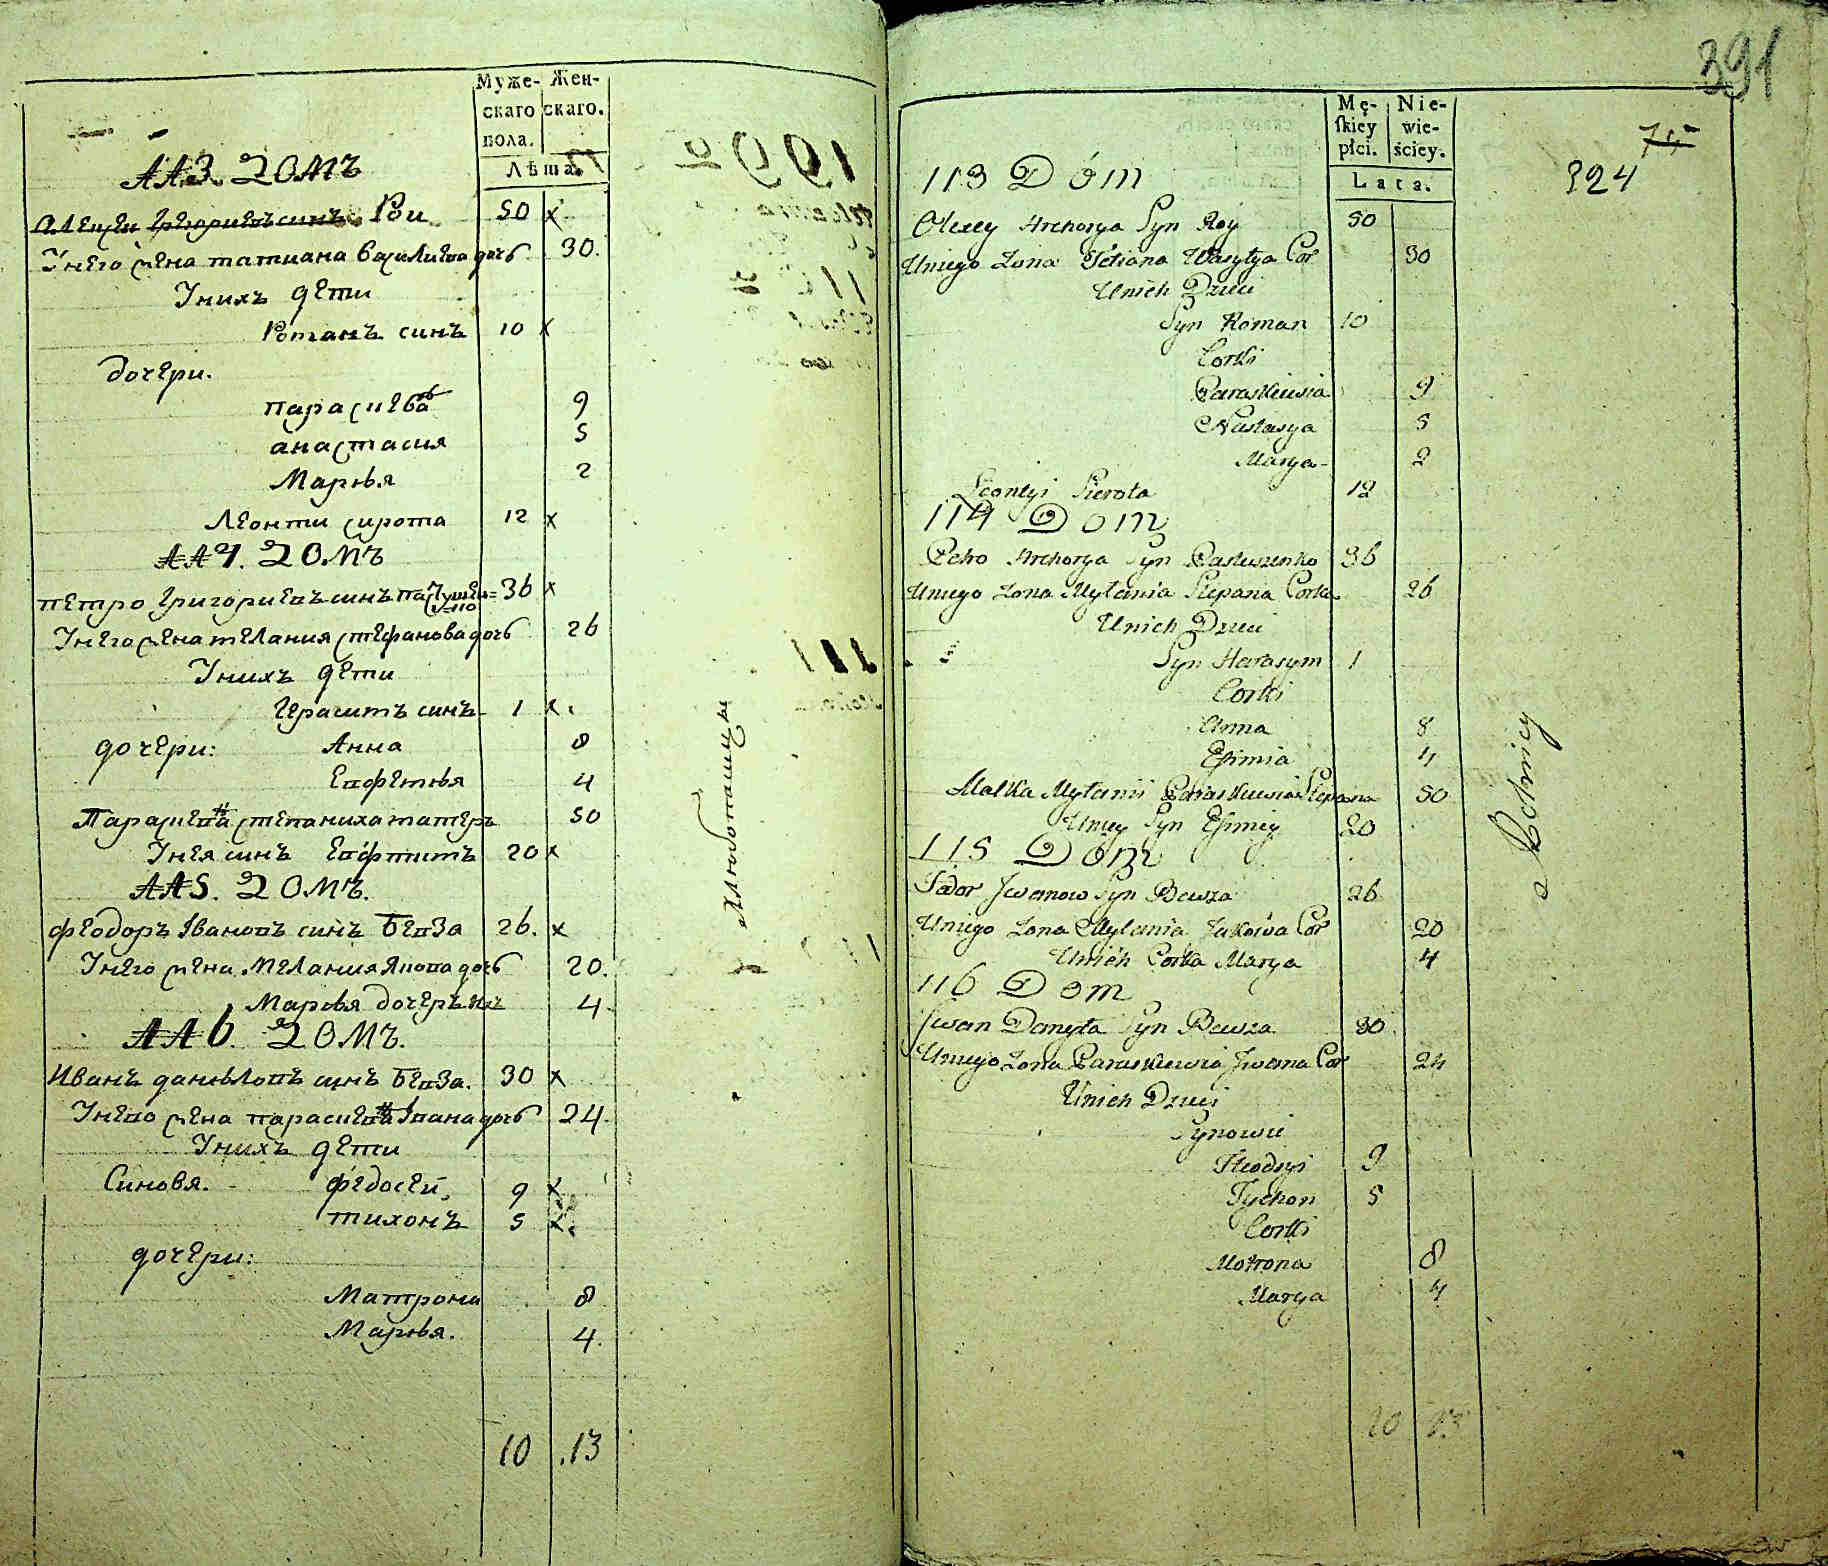 Муже- Жен-
скаго скаго.
пола.
Лѣта.
113. Домъ
Алеѯеи Григориевъ синъ Рои 50 х
У него жена татиана василиева дочь 30.
У нихъ дети
Романъ синъ 10 х
дочери.
параскева 9
анастасия 5
Марья 2
Леонти сирота 12 х
114. Домъ
петро Григориевъ синъ 36 х
У него жена мелания стефанова дочь 26
У нихъ дети
Герасимъ синъ 1 х
дочери: Анна 8
Евфемья 4
Параскева степаниха матерь 50
У нея синъ Евфимъ 20 х
115. Домъ.
феодоръ Ивановъ синъ Бевза 26. х
У него жена Мелания Якова дочь 20.
Марья дочерь ихъ 4
116. Домъ.
Иванъ даниловъ синъ Бевза. 30 х
У него жена параскева Ивана дочь 24.
У нихъ дети
Синовя. федосей, 9 х
тихонъ 5 х
дочери:
Матрона 8
Марья. 4.
10 13
хлебопашцы
391
Mę- Nie-
skiey wie-
płci. ściey.
Lata.
75
324
113 Dóm
Olexey Hrehorya Syn Roy 50
U niego Zona Tetiana Wasylya Cor 30
U nich Dzieci
Syn Roman 10
Corki
Paraskiewia 9
Nastasya 5
Marya 2
Leontyi Sierota 12
114 Dom
Petro Hrehorya Syn Pastuszenko 36
U niego Zona Mylania Stepana Corka 26
U nich Dzieci
Syn Harasym 1
Corki
Anna 8
Efimia 4
Matka Mylanii Paraskiewia Stepana 50
U niey Syn Efimiy 20
115 Dóm
Fedor Iwanow Syn Bewza 26
U niego Zona Mylania Jakowa Cor 20
U nich Corka Marya 4
116 Dom
Iwan Danyła Syn Bewza 30
U niego Zona Paraskiewia Iwana Cor 24
U nich Dzieci
Synowie
Feodsyi 9
Tychon 5
Corki
Motrona 8
Marya 4
10 13
Rolnicy